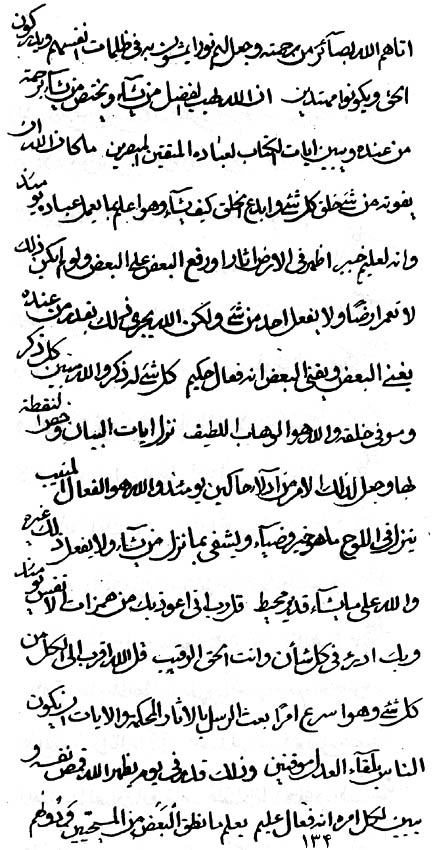 اتاهم الله بصآئر من رحمته وجعل لهم نورا يمشون به في ظلمات انفسهم ويدركون
الحق ويكونوا مهتدين ان الله يهب الفضل من يشآء ويختص من يشآء برحمة
من عنده ويبين ايات الكتاب لعباده المتقين المبصرين ما كان الله ان
يفوته من شئ خلق كل شئ وابدع الخلق كيف يشآء وهو اعلم بما يعمل عباده يومئذ
وانه لعليم خبير اظهر في الارض اثارا ورفع البعض على البعض ولو لم يكن ذلك
لا تعمر ارضا ولا يفعل احد من شئ ولكن الله يجري ذلك بقدر من عنده
يغني البعض ويفني البعض انه فعال حكيم كل شئ له ذكر والله مبين كل ذكر
وموفي خلقه والله هو الوهاب اللطيف نزل ايات البيان وخص النقطة
بها وجعل لذلك الامر من ادلآء حاكين يومئذ والله هو الفعال المنيب
ينزل في اللوح ما هو خير وضيآء ويشفي بما نزل من يشآء ولا يفعل ذلك غيره
والله على ما يشآء قدير محيط قل رب اني اعوذ بك من همزات الانفس يومئذ
وبك ادرء في كل شأن وانت الحق الرقيب قل الله اقرب الى الكل من
كل شئ وهو اسرع امرا بعث الرسل بالاثار المحكمة والايات ان يكون
الناس بلقآء العدل موقنين وذلك في يوم يظهر الله نفسه و
يبين لكل امره انه فعال عليم يعلم ما نطق البعض من المسيحيين
١٣٤